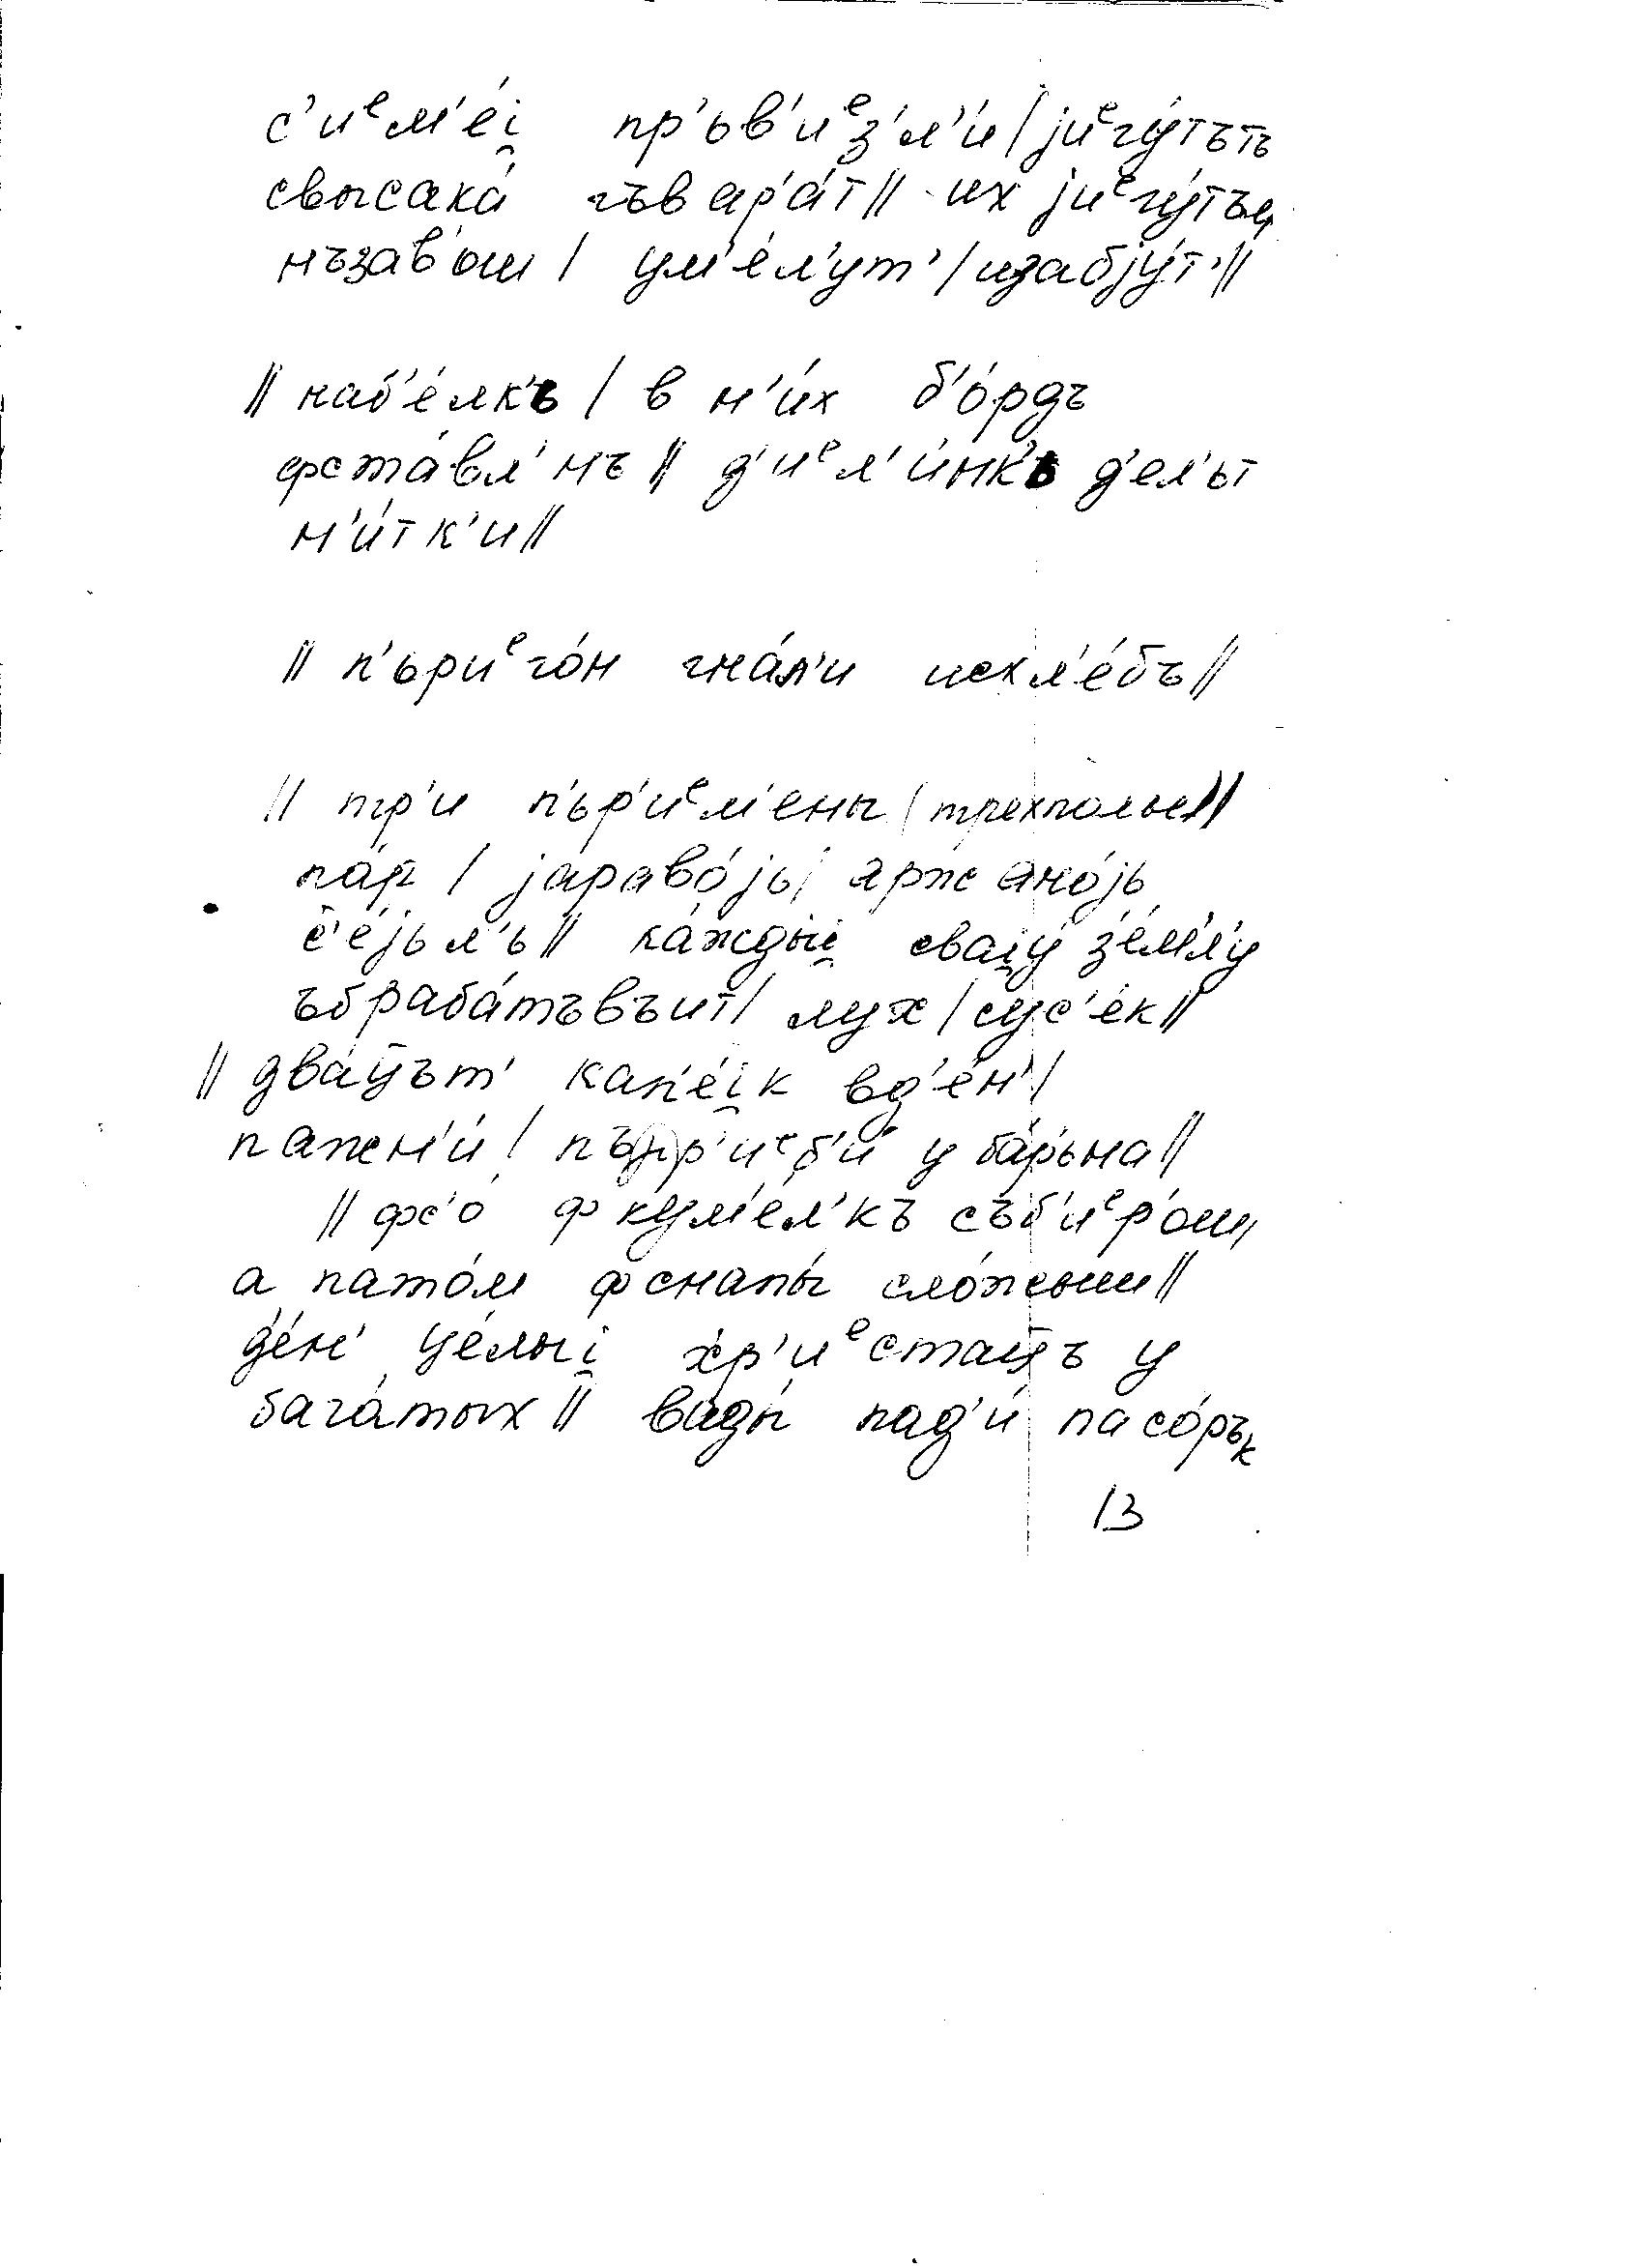 с'иᵉм'е́і̯ пр'ьв'иᵉз'л'и́ / jиᵉгу́тътъ
свысака́ гъвар'а́т // их jиᵉгу́тъи̯
нъзав'о́ш / ум'е́л'ут' / изабjу́т' //
// наб'е́лк'ь / в н'и́х б'о́рдъ
фста́вл'нъ // д'иᵉл'и́нк'ь д'е́л'ът
н'и́тк'и //
// п'ьриᵉго́н гна́л'и исхл'е́бъ //
// тр'и п'ьр'иᵉм'е́ны / трехполье //
па́р / jаραво́jь / аржано́jь
с'е́jьл'ь // ка́ждыі̯ сваі̯у́ з'е́мл'у
ъбраба́тъвъит / лух / сус'е́к //
// два́ц̄ът' кап'е́і̯к вд'е́н' /
пажн'и́ / пъ р'иᵉб'и́ у ба́р'ьна //
// фс'о́ ф кум'е́л'къ съб'иᵉр'о́ш
а пато́м фснапы́ сло́жыш //
д'е́н' це́лыі̯ хр'иᵉстац̄ъ у
бага́тых // вады́ пад'и́ па со́рък
13